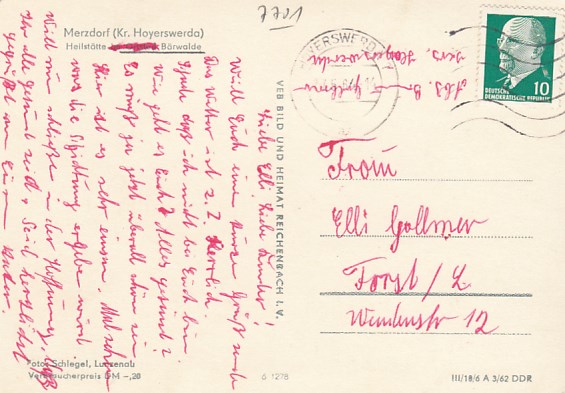 7701
Merzdorf (Kr. Hoyerswerda)
Heilstätte Bärwalde
Liebe Elli, liebe Kinder!
Will Euch einen kurzen Gruß senden
Das Wetter ist z. Z. herrlich.
Schade daß ich nicht bei Euch bin
Wie geht es Euch? Alles gesund?
Es muß ja jetzt überall schön sein
Hier ist es sehr einsam. Mal sehen
was die Schichtung ergeben wird
Will nun schließen in der Hoffnung, daß
Ihr alle gesund seid u. Seid herzlichst
gegrüßt von Eurem
Foto: Schlegel, Luppenau
Verbraucherpreis DM -,20
VEB BILD UND HEIMAT REICHENBACH I. V.
G 1278
HOYERSWERDA
Abs. Gollmer
Hoyerswerda
10
DEUTSCHE
DEMOKRATISCHE REPUBLIK
Frau
Elli Gollmer
Forst/L
Wendenstr 12
III/18/6 A 3/62 DDR